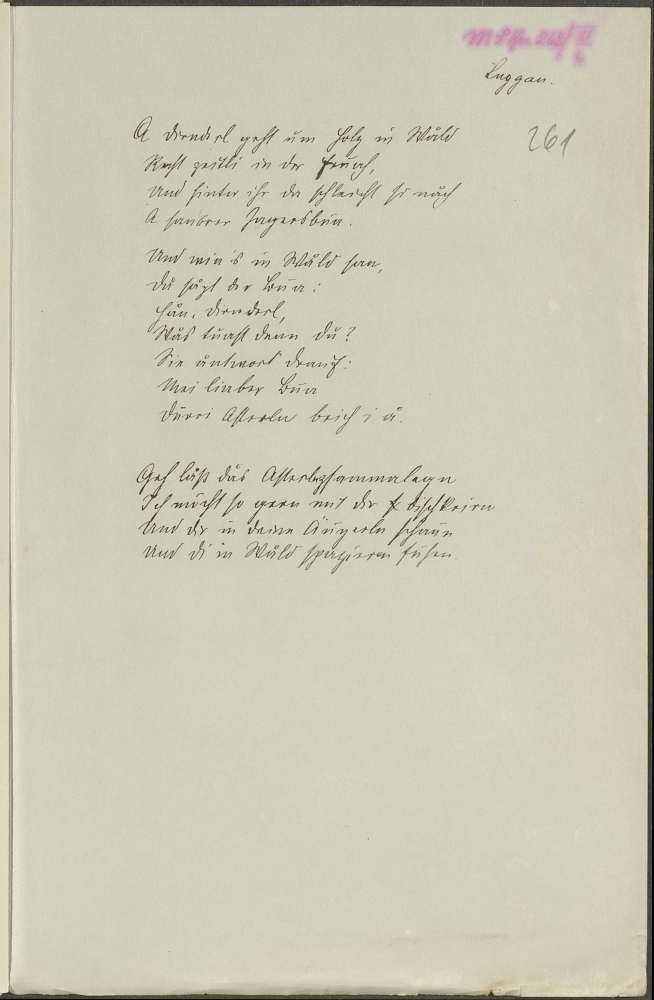 Luggau.
261
A Dirnderl geht um Holz in Wåld
Recht zeitli in der Fruah,
Und hinter ihr da schleicht si nåch
A saubrer Jagersbua.
Und wia's in Wåld san,
Då sågt der Bua:
Hån, Dirnderl,
Wås tuast denn du?
Sie åntwort drauf:
Mei liaber Bua
Dürri Asterln brich i å.
Geh låß dås Asterlzsammalegn
I möcht so gern mit dir dischkrirn
Und dir in deine Äugerln schaun
Und di in Wåld spazieren führn.